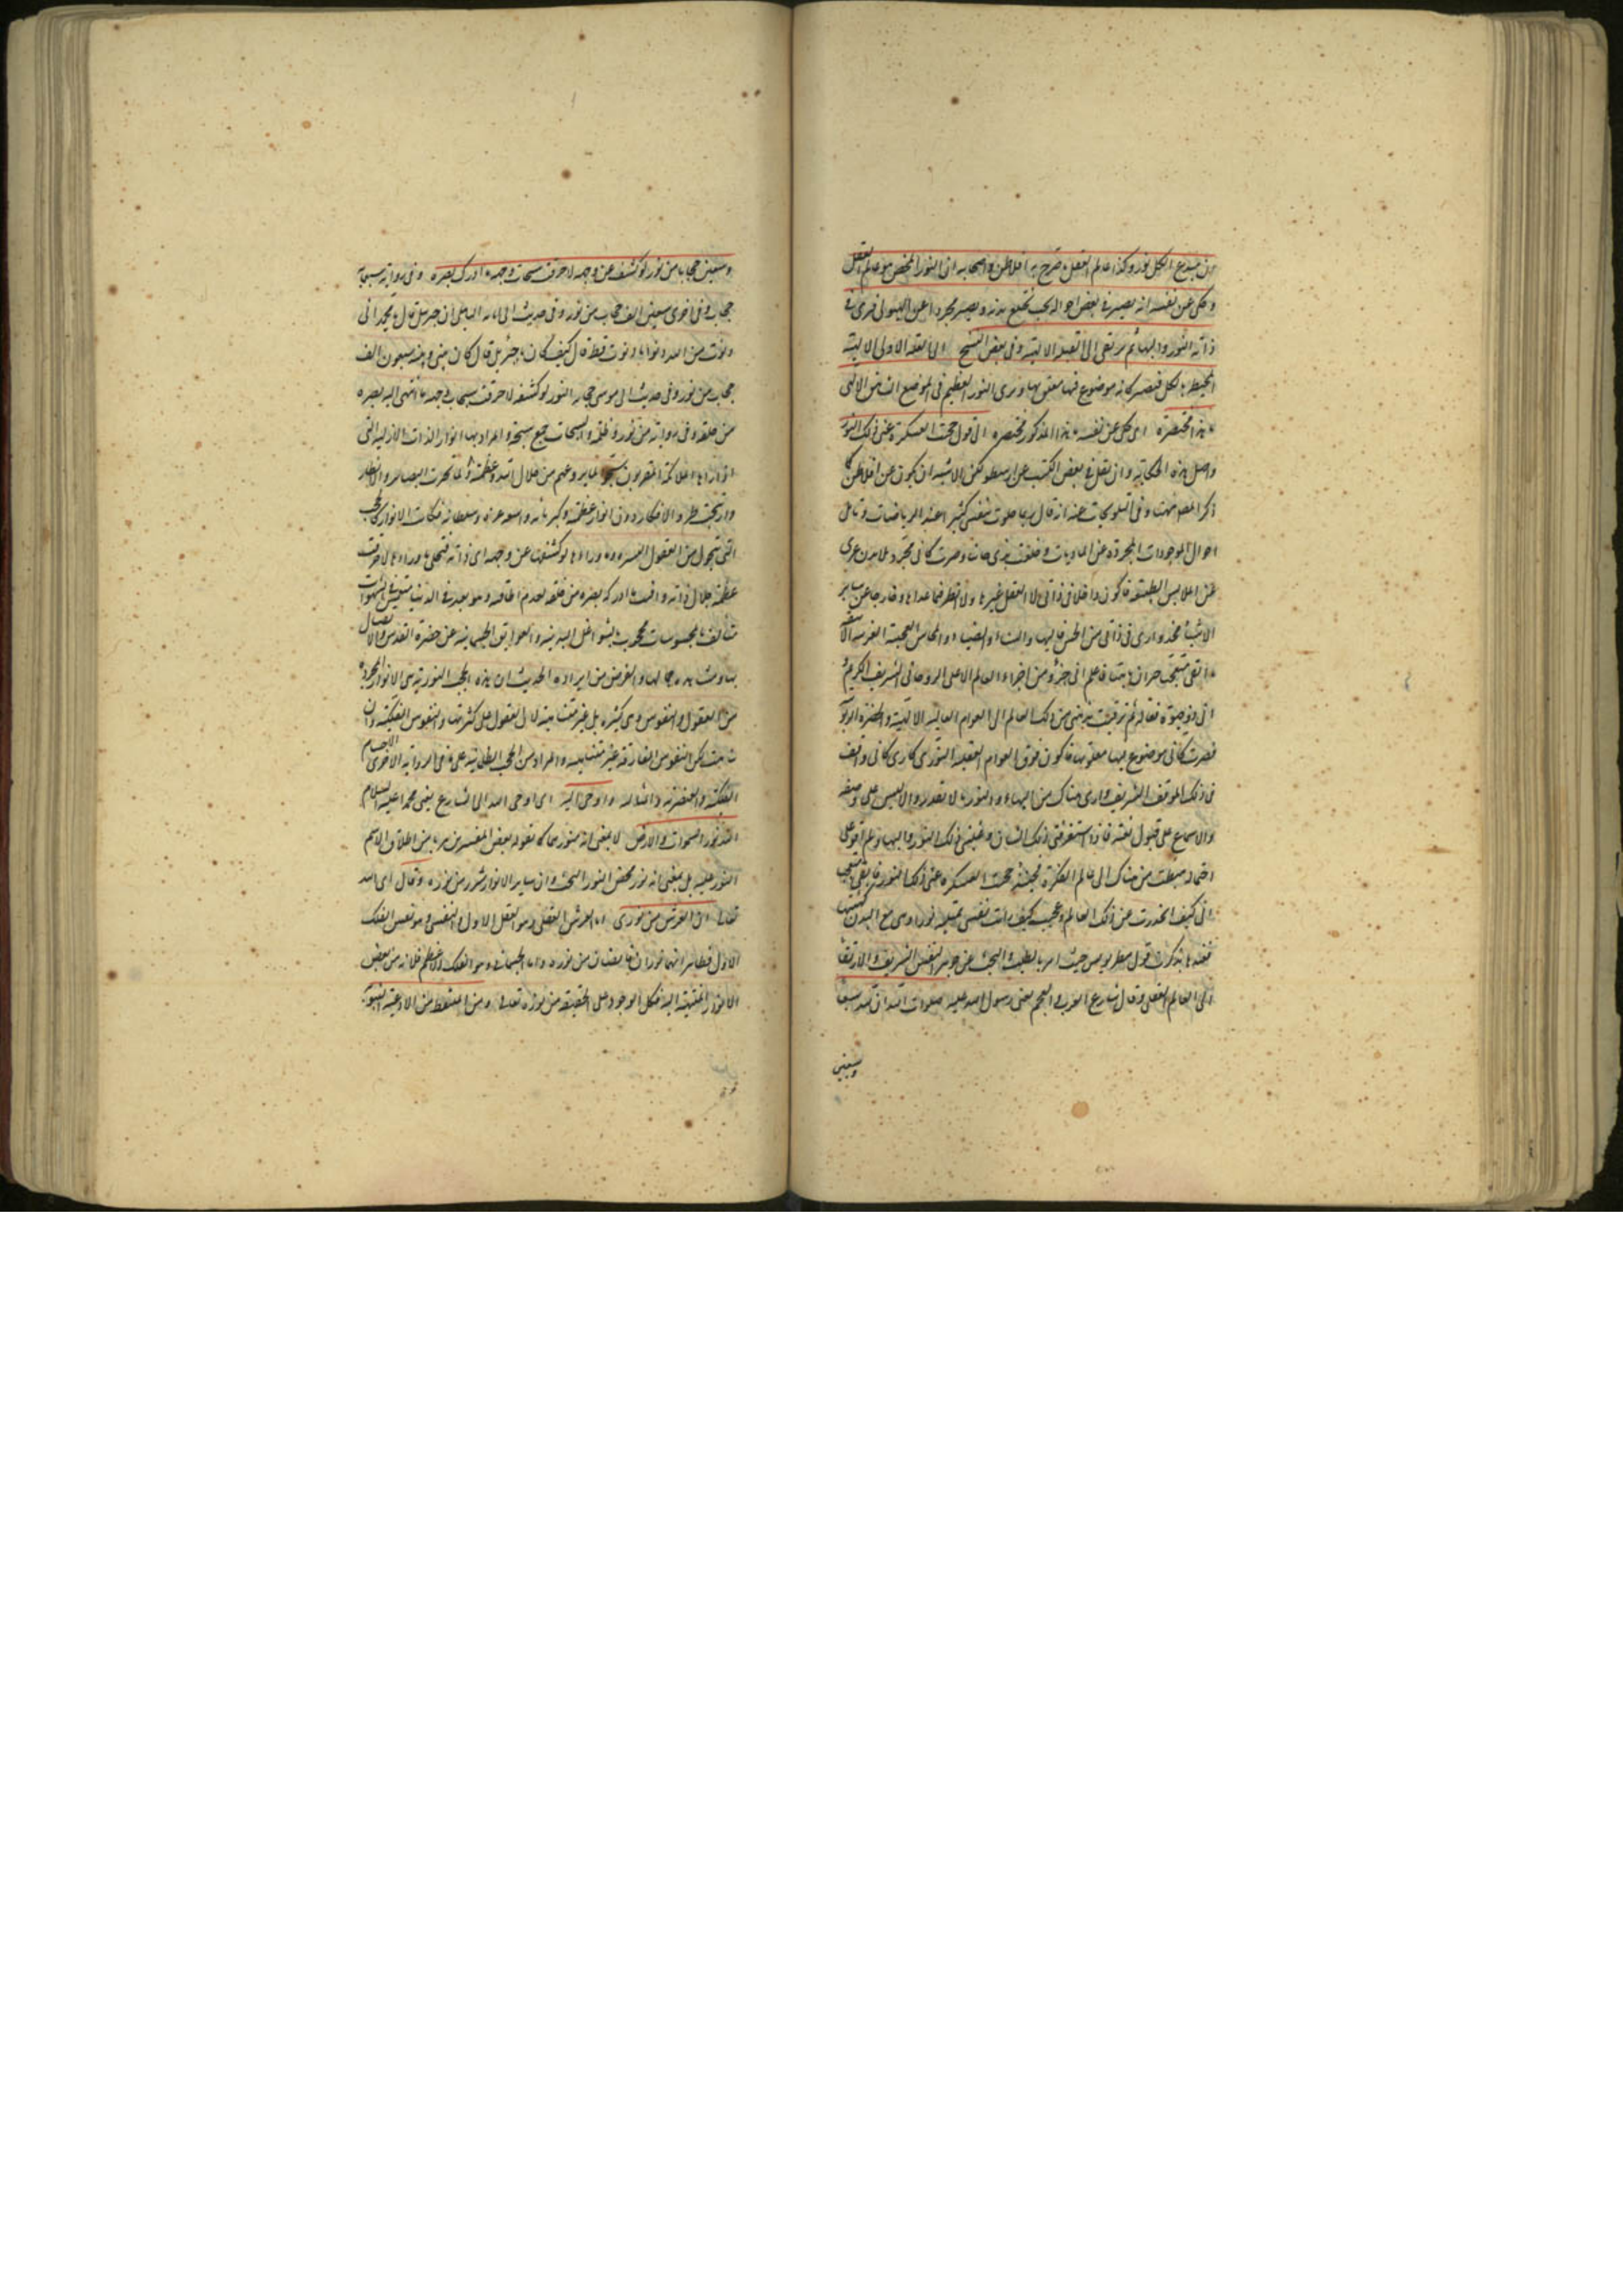 ان مبدع الكل نور وكذا عالم العقل صرح به افلاطن واصحابه ان النور المحض هو عالم العقل
وحكى عن نفسه انه يصير في بعض احواله بحيث يخلع بدنه ويصير مجردا عن الهيولى فيرى في
ذاته النور والبهاء ثم يرتقى الى العلة الالهية وفى بعض النسخ الى العلة الاولى الالهية
المحيطة بالكل فيصير كانه موضوع فيها معلق بها ويرى النور العظيم في الموضع الشاهق الالهى
ما هذا مختصره اى حكى عن نفسه ما هذا المذكور مختصره الى قوله حجبت الفكرة عنى ذلك النور
واصل هذه الحكاية وان نقل في بعض الكتب عن ارسطو لكن الاشبه ان يكون عن افلاطن كما
ذكر المصنف هنا وفى التلويحات عنه انه قال ربما خلوت بنفسى كثيرا عند الرياضات وتامل
احوال الموجودات المجردة عن الماديات وخلعت بدنى جانبا وصرت كانى مجرد بلا بدن عرى
عن الملابس الطبيعية فاكون داخلا في ذاتى لا اتعقل غيرها ولا انظر فيما عداها وخارجا عن ساير
الاشياء فحينئذ ارى في ذاتى من الحسن والبهاء والسناء والضياء والمحاسن العجيبة الغريبة الانيقة
ما ابقى متعجبا حيرانا باهتا فاعلم انى جزء من اجزاء العالم الاعلى الروحانى الشريف الكريم
انى ذو حيوة فعالة ثم ترقيت بذهنى من ذلك العالم الى العوالم العالية الالهية والحضرة الربوبية
فصرت كانى موضوع فيها معلق بها فاكون فوق العوالم العقلية النورية فارى كانى واقف
في ذلك الموقف الشريف وارى هناك من البهاء والنور ما لا تقدر الالسن على وصفه
والاسماع على قبول نعته فاذا استغرقنى ذلك الشان وغلبنى ذلك النور والبهاء ولم اقو على
احتماله هبطت من هناك الى عالم الفكرة فحينئذ حجبت الفكرة عنى ذلك النور فابقى متعجبا
انى كيف انحدرت عن ذلك العالم وعجبت كيف رايت نفسى ممتلية نورا وهى مع البدن كهيئتها
فعندها تذكرت قول مطريوس حيث امر بالطلب والبحث عن جوهر النفس الشريف والارتقاء
الى العالم العقلى وقال شارع العرب والعجم يعنى رسول الله عليه صلوات الله ان لله سبعا
وسبعين
وسبعين حجابا من نور لو كشفت عن وجهه لاحرقت سبحات وجهه ما ادرك بصره وفى رواية سبعمائة
حجاب وفى اخرى سبعين الف حجاب من نور وفى حديث ابى امامة الباهلى ان جبريل قال يا محمد انى
دنوت من الله دنوا ما دنوت قط قال كيف كان يا جبرئيل قال كان بينى وبينه سبعون الف
حجاب من نور وفى حديث ابى موسى حجابه النور لو كشفه لاحرقت سبحات وجهه ما انتهى اليه بصره
من خلقه وفى رواية من نور وظلمة والسبحات جمع سبحة والمراد بها انوار الذات الازلية التى
اذا راها الملائكة المقربون سبحوا لما يروعهم من جلال الله وعظمته ولما تحيرت البصائر والابصار
وارتجت طرق الافكار دون انوار عظمته وكبريائه واشعة عزه وسلطانه فكانت الانوار كالحجب
التى تحول بين العقول البشرية وما وراءها لو كشفت عن وجهه اى ذاته فتجلى ما وراءها لاحرقت
عظمة جلال ذاته وافنت ما ادركه بصره من خلقه لعدم الطاقة وهو بعد في الدنيا منغمس في الشهوات
متالف بالمحسوسات محجوب بالشواغل البدنية والعوايق الجسمانية عن حضرة القدس والاتصال
بها ومشاهدة جمالها والغرض من ايراد هذا الحديث ان هذه الحجب النورية هى الانوار المجردة
من العقول والنفوس وهى كثيرة بل غير متناهية لان العقول على كثرتها والنفوس الفلكية وان
تناهت لكن النفوس المفارقة غير متناهية والمراد من الحجب الظلمانية على ما فى الرواية الاخرى الاجسام
الفلكية والعنصرية واشار اليه واوحى اليه اى اوحى الله الى الشارع يعنى محمدا عليه السلام
الله نور السموات والارض لا بمعنى انه منورهما كما يقوله بعض المفسرين هربا من اطلاق الاسم
النور عليه بل بمعنى انه نور محض النور البحت وان ساير الانوار شرر من نوره وقال اى الله
تعالى ان العرش من نورى اما العرش العقلى وهو العقل الاول والنفسى وهو نفس الفلك
الاول فظاهر انهما نوران فايضان من نوره واما الجسمانى وهو الفلك الاعظم فلانه من بعض
الانوار المنتهية اليه فكل الوجود على الحقيقة من نوره تعالى ومن الملتقط من الادعية النبوية